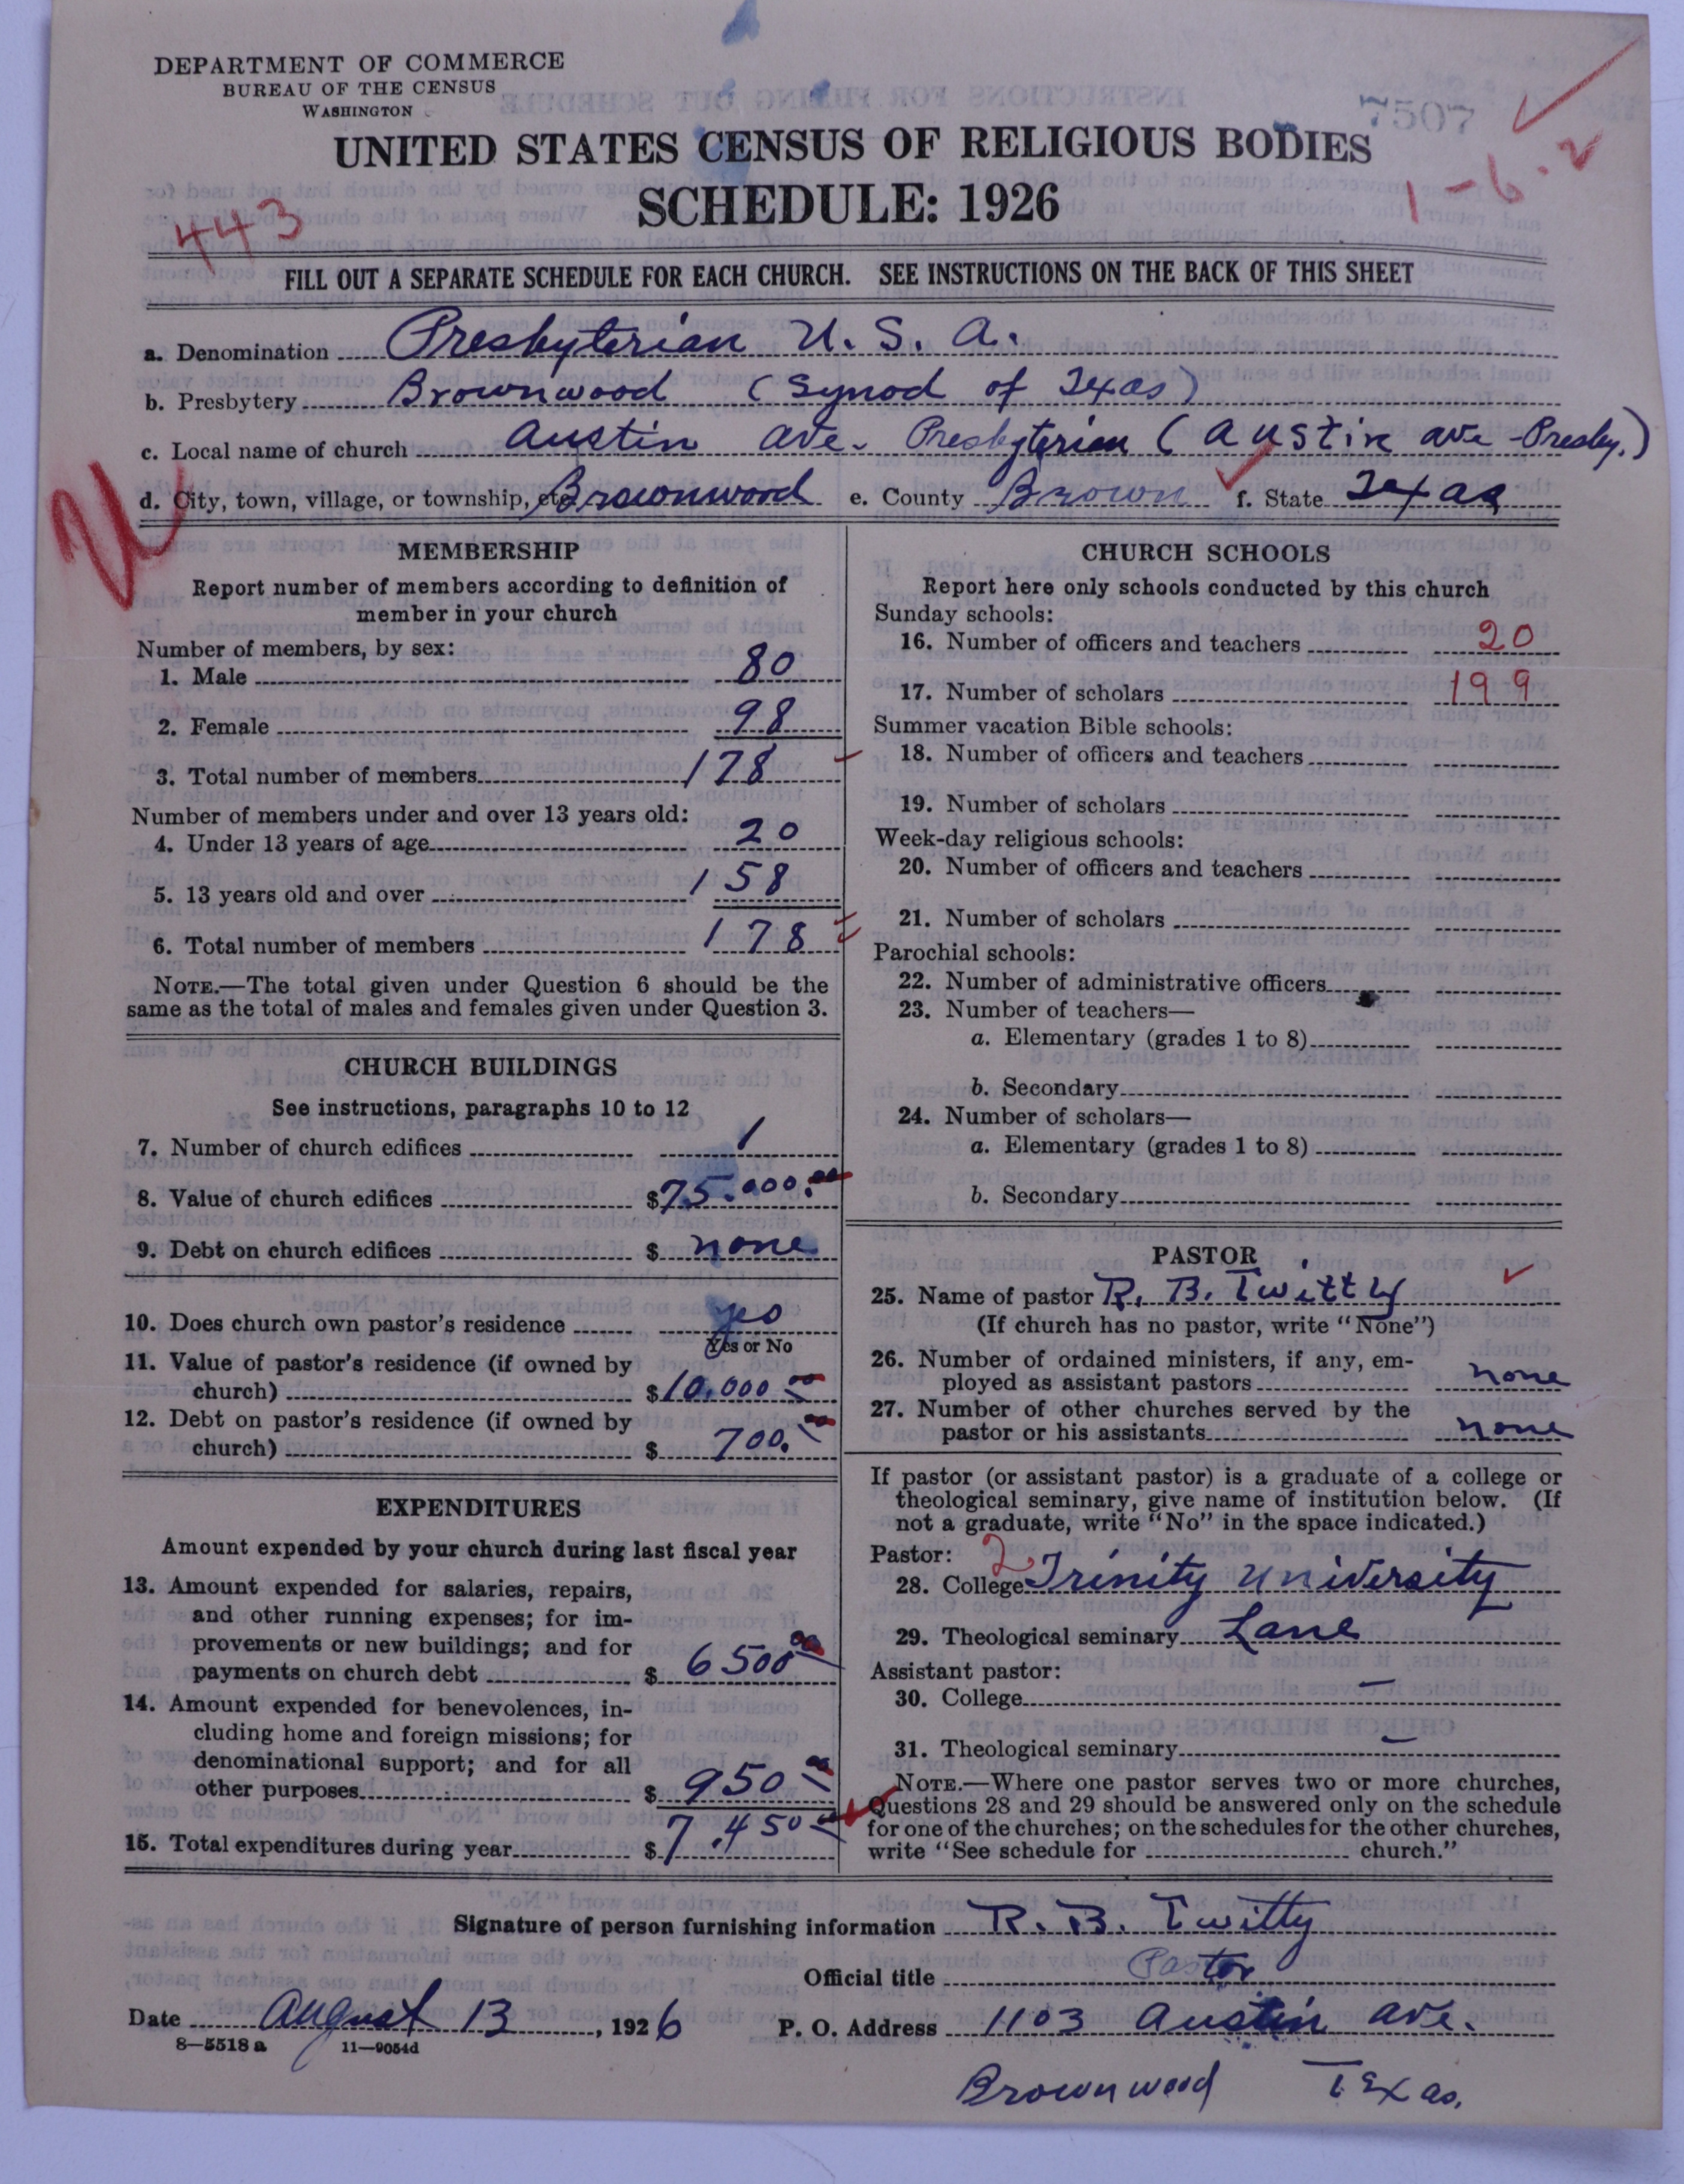 DEPARTMENT OF COMMERCE
BUREAU OF THE CENSUS
WASHINGTON
7507
UNITED STATES CENSUS OF RELIGIOUS BODIES
1-6-2
SCHEDULE: 1926
443
FILL OUT A SEPARATE SCHEDULE FOR EACH CHURCH. SEE INSTRUCTIONS ON THE BACK OF THIS SHEET
a. Denomination Presbyterian U. S. A.
b. Presbytery Brownwood (Synod of Texas)
c. Local name of church Austin Ave. Presbyterian (Austin ave - Presby.)
d. City, town, village, or township, etc. Brownwood e. County Brown f. State Texas
MEMBERSHIP
Report number of members according to definition of
member in your church
Number of members, by sex:
1. Male 80
2. Female 98
3. Total number of members 178
Number of members under and over 13 years old:
4. Under 13 years of age 20
5. 13 years old and over 158
6. Total number of members 178
NOTE.—The total given under Question 6 should be the
same as the total of males and females given under Question 3.
CHURCH BUILDINGS
See instructions, paragraphs 10 to 12
7. Number of church edifices 1
8. Value of church edifices $75.000.00
9. Debt on church edifices $ none
10. Does church own pastor's residence yes
Yes or No
11. Value of pastor's residence (if owned by
church) $10,000 00
12. Debt on pastor's residence (if owned by
church) $ 700. 00
EXPENDITURES
Amount expended by your church during last fiscal year
13. Amount expended for salaries, repairs,
and other running expenses; for im-
provements or new buildings; and for
payments on church debt $ 6500 00
14. Amount expended for benevolences, in-
cluding home and foreign missions; for
denominational support; and for all
other purposes $ 950 00
15. Total expenditures during year $ 7.450 00
CHURCH SCHOOLS
Report here only schools conducted by this church
Sunday schools:
16. Number of officers and teachers 20
17. Number of scholars 199
Summer vacation Bible schools:
18. Number of officers and teachers
19. Number of scholars
Week-day religious schools:
20. Number of officers and teachers
21. Number of scholars
Parochial schools:
22. Number of administrative officers
23. Number of teachers—
a. Elementary (grades 1 to 8)
b. Secondary
24. Number of scholars—
a. Elementary (grades 1 to 8)
b. Secondary
PASTOR
25. Name of pastor R. B. Twitty
(If church has no pastor, write "None")
26. Number of ordained ministers, if any, em-
ployed as assistant pastors none
27. Number of other churches served by the
pastor or his assistants none
If pastor (or assistant pastor) is a graduate of a college or
theological seminary, give name of institution below. (If
not a graduate, write "No" in the space indicated.)
Pastor: 2
28. College Trinity University
29. Theological seminary Lane
Assistant pastor:
30. College —
31. Theological seminary —
NOTE.—Where one pastor serves two or more churches,
Questions 28 and 29 should be answered only on the schedule
for one of the churches; on the schedules for the other churches,
write "See schedule for church."
Signature of person furnishing information R. B. Twitty
Official title Pastor
Date August 13, 1926 P. O. Address 1103 Austin ave.
8—5518 a 11—9054d
Brownwood Texas.